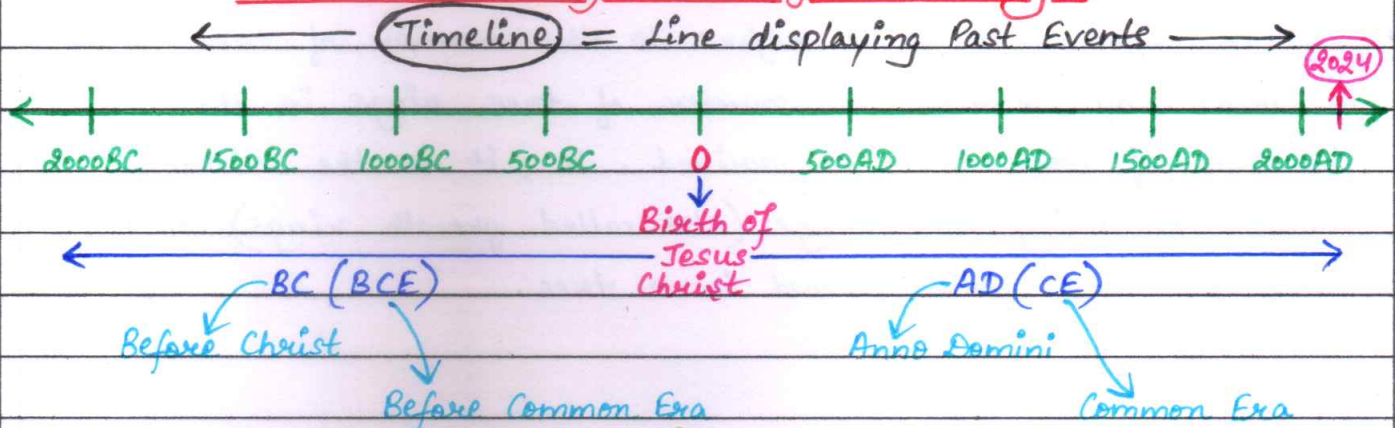 Timeline = Line displaying Past Events
2024
2000BC 1500BC 1000BC 500BC 0 500AD 1000AD 1500AD 2000AD
Birth of
Jesus
Christ
BC (BCE) AD (CE)
Before Christ Anno Domini
Before Common Era Common Era